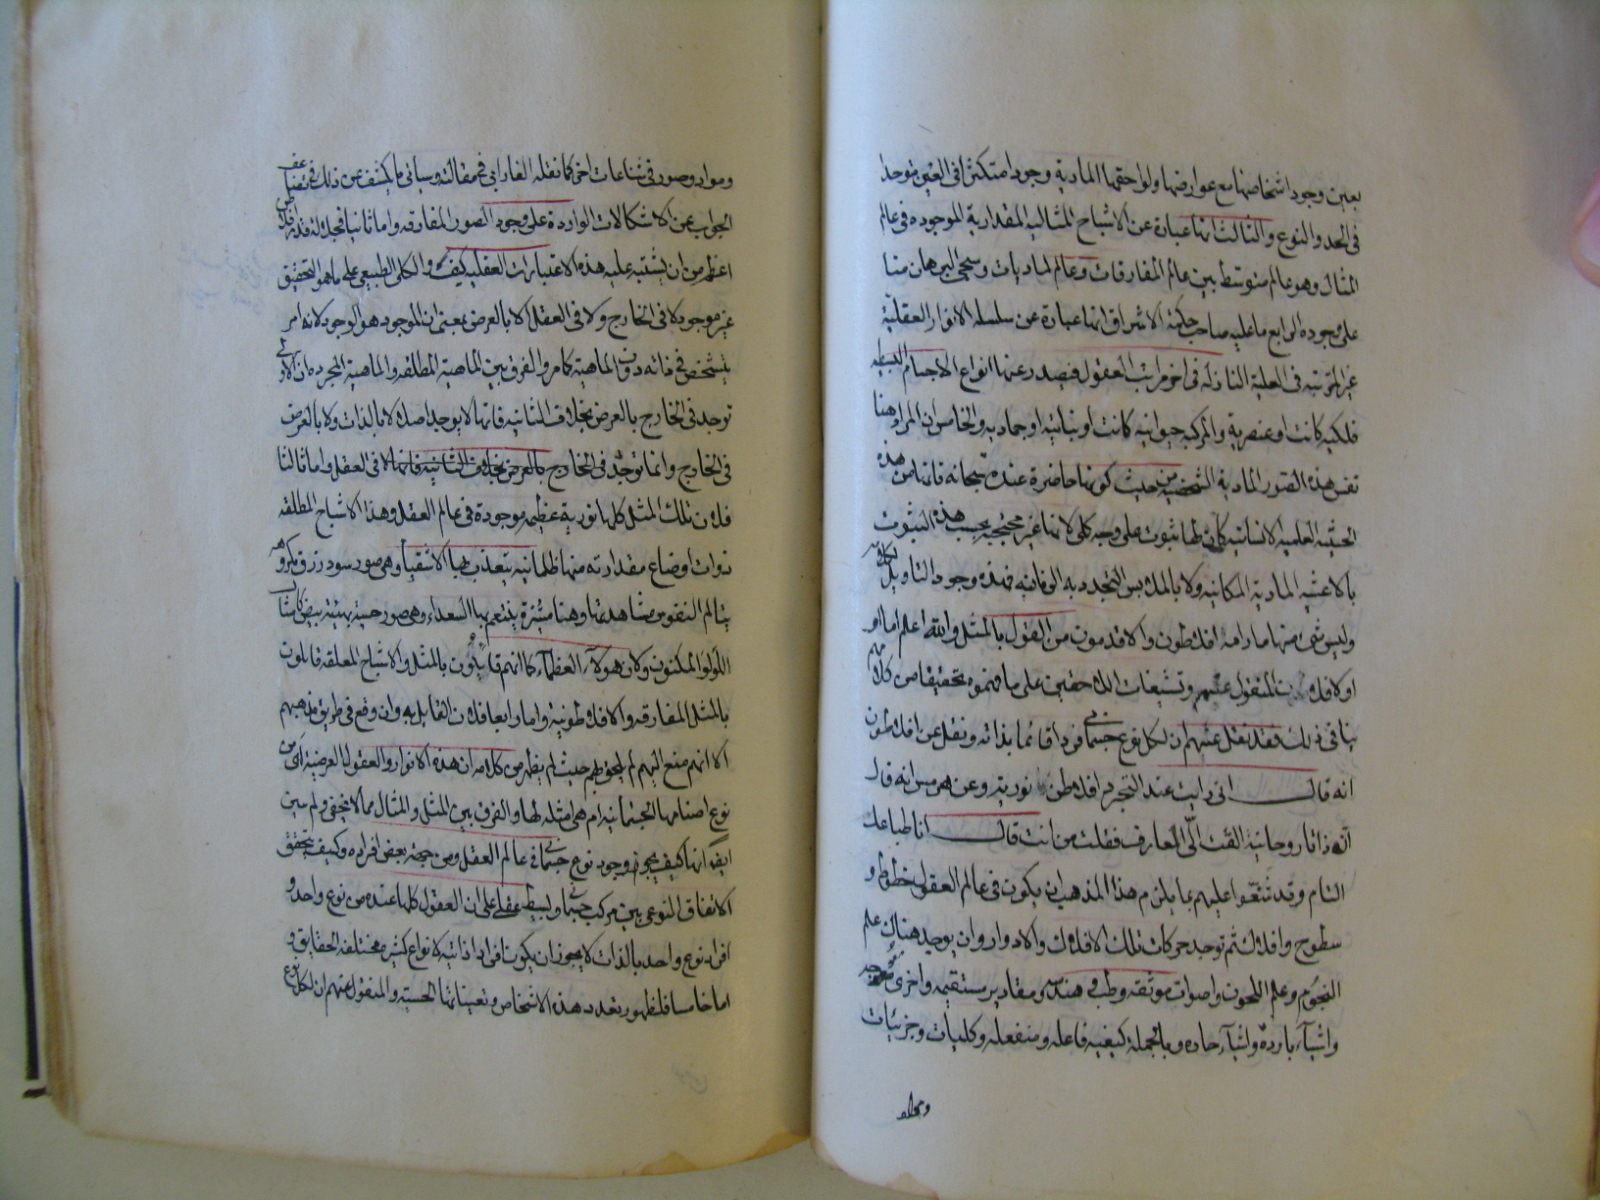 بعين وجود اشخاصها مع عوارضها ولواحقها المادية وجودا متكثرا في العين متوحدا
في الحد والنوع والثالث انها عبارة عن الاشباح المثالية المقدارية الموجودة في عالم
المثال وهو عالم متوسط بين عالم المفارقات وعالم الماديات وسيجئ البرهان منا
على وجوده الرابع ما عليه صاحب حكمة الاشراق انها عبارة عن سلسلة الانوار العقلية
الغير المترتبة في العلية النازلة في اخر مراتب العقول فيصدر عنها انواع الاجسام البسيطة
فلكية كانت او عنصرية والمركبة حيوانية كانت او نباتية او جمادية والخامس ان المراد هنا
نفس هذه الصور المادية الشخصية من حيث كونها حاضرة عنده سبحانه فانها من هذه
الحيثية العلمية كان لها ثبوت على وجه كلي لانها غير محتجبة بحسب هذه الثبوت
بالاغشية المادية المكانية ولا بالملابس التجددية الزمانية فهذه وجوه التاويل لكلامه
وليس شئ منها ما رامه افلاطون والاقدمون من القول بالمثل والله اعلم اما
اولا فلان المنقول عنهم وتشنيعات اللاحقين على ما فهموه تحقيقا من كلامهم
ينافي ذلك فقد نقل عنهم ان لكل نوع جسماني فردا قائما بذاته ونقل عن افلاطون
انه قال اني رايت عند التجرد افلاطن نورية وعن هرمس انه قال
ان ذاتا روحانية القت الي المعارف فقلت من انت قال انا طباعك
التام وقد شنعوا عليهم بما يلزم هذا المذهب ان يكون في عالم العقول خطوط و
سطوح وافلاك ثم توجد حركات تلك الافلاك والادوار وان يوجد هناك علم
النجوم وعلم اللحون واصوات مؤتلفة وطب وهندسة ومقادير مستقيمة واخرى معوجة
واشياء باردة واشياء حادة وبالجملة كيفية فاعلة ومنفعلة وكليات وجزئيات
ومواد وصور في شناعات اخر كما نقله الفارابي في مقالته وسياتي ما يكشف عن ذلك في
الجواب عن الاشكالات الواردة على وجود الصور المفارقة واما ثانيا فجلالة قدر افلاطن
اعظم من ان يشتبه عليه هذه الاعتبارات العقلية كيف والكلي الطبيعي على ما هو التحقيق
غير موجود لا في الخارج ولا في العقل الا بالعرض بمعنى ان الموجود هو الوجود لانه امر
يتشخص في ذاته دون الماهية كما مر والفرق بين الماهية المطلقة والماهية المجردة ان الاولى
توجد في الخارج بالعرض بخلاف الثانية فانها لا يوجد اصلا لا بالذات ولا بالعرض
في الخارج وانما توجد في الخارج بالعرض بخلاف الثانية فانها لا في العقل واما ثالثا
فلان تلك المثل كلها نورية عظيمة موجودة في عالم العقل وهذا الاشباح المطلقة
ذوات اوضاع مقدارية منها ظلمانية يتعذب بها الاشقياء وهي صور سود زرق مكروهة
يتالم النفوس من مشاهدتها وهنا ينتعم بها السعداء وهي صور حسنة بهية بيض كامثال
اللؤلؤ المكنون ولان هولاء العظماء كما انهم قايلون بالمثل والاشباح المعلقة قايلون
بالمثل المفارقة والافلاطونية واما رابعا فلان القايل به وان وقع في طريق مذهبهم
الا انهم لم حيث لم يظهر من كلامه ان هذه الانوار والعقول العرضية اهي من
نوع اصنامها الجسمانية ام هي امثلة لها والفرق بين المثل والمثال مما لا يخفى ولم يبين
ايضا انها كيف يجوز وجود نوع جسماني في عالم العقل ومن جهة بعض افراده وكيف يتحقق
الاتفاق النوعي بين مركب جسماني وبسيط عقلي على ان العقول كلها عنده من نوع واحد و
افراد نوع واحد بالذات لا يجوز ان يكون افرادا ذاتية لانواع كثيرة مختلفة الحقايق و
اما خامسا فلظهور تعدد هذه الاشخاص وتعيناتها الحسية والمنقول عنهم ان لكل نوع